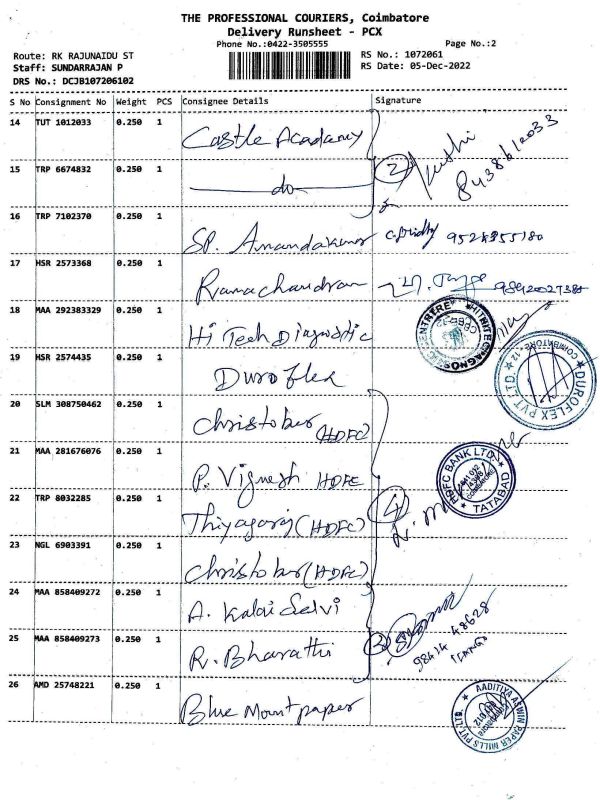 THE PROFESSIONAL COURIERS, Coimbatore
Delivery Runsheet - PCX
Phone No.:0422-3505555 Page No.:2
Route: RK RAJUNAIDU ST RS No.: 1072061
Staff: SUNDARRAJAN P RS Date: 05-Dec-2022
DRS No.: DCJB107206102
S No Consignment No Weight PCS Consignee Details Signature
14 TUT 1012033 0.250 1 Castle Acadamy
15 TRP 6674832 0.250 1 do 2
16 TRP 7102370 0.250 1 SP. Anandakumar
17 HSR 2573368 0.250 1 Ramachandran
18 MAA 292383329 0.250 1 Hi Tech Diagnostic
19 HSR 2574435 0.250 1 Duroflex
DUROFLEX PVT LTD. COIMBATORE-12
20 SLM 308750462 0.250 1 Christober (HDFC)
21 MAA 281676076 0.250 1 P. Vignesh HDFC
HDFC BANK LTD. TATABAD
22 TRP 8032285 0.250 1 Thiyagaraj (HDFC) 4
23 NGL 6903391 0.250 1 Christober (HDFC)
24 MAA 858409272 0.250 1 A. Kalai Selvi
25 MAA 858409273 0.250 1 R. Bharathi
98414 48628
26 AMD 25748221 0.250 1 Blue Mount paper
AADITIYA ASWIN PAPER MILLS PVT LTD.